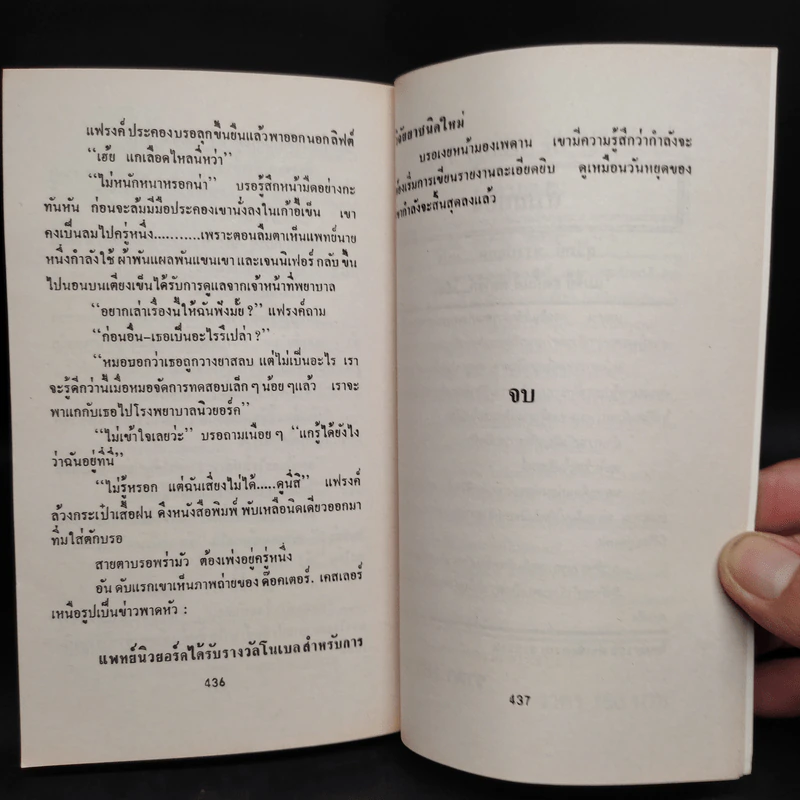 แฟรงค์ประคองบรอลุกขึ้นยืนแล้วพาออกนอกลิฟต์
“เฮ้ย แกเลือดไหลนี่หว่า”
“ไม่หนักหนาหรอกน่า” บรอรู้สึกหน้ามืดอย่างกะ
ทันหัน ก่อนจะล้มมีมือประคองเขานั่งลงในเก้าอี้เข็น เขา
คงเป็นลมไปครู่หนึ่ง..........เพราะตอนลืมตาเห็นแพทย์นาย
หนึ่งกำลังใช้ ผ้าพันแผลพันแขนเขา และเจนนิเฟอร์ กลับ ขึ้น
ไปนอนบนเตียงเข็นได้รับการดูแลจากเจ้าหน้าที่พยาบาล
“อยากเล่าเรื่องนี้ให้ฉันฟังมั้ย?” แฟรงค์ถาม
“ก่อนอื่น–เธอเป็นอะไรรึเปล่า?”
“หมอบอกว่าเธอถูกวางยาสลบ แต่ไม่เป็นอะไร เรา
จะรู้ดีกว่านี้เมื่อหมอจัดการทดสอบเล็ก ๆ น้อย ๆแล้ว เราจะ
พาแกกับเธอไปโรงพยาบาลนิวยอร์ค”
“ไม่เข้าใจเลยว่ะ” บรอถามเนือย ๆ “แกรู้ได้ยังไง
ว่าฉันอยู่ที่นี่”
“ไม่รู้หรอก แต่ฉันเสี่ยงไม่ได้.....ดูนี่สิ” แฟรงค์
ล้วงกระเป๋าเสื้อฝน ดึงหนังสือพิมพ์ พับเหลือนิดเดียวออกมา
ทิ้มใส่ตักบรอ
สายตาบรอพร่ามัว ต้องเพ่งอยู่ครู่หนึ่ง
อันดับแรกเขาเห็นภาพถ่ายของ ด๊อคเตอร์. เคสเลอร์
เหนือรูปเป็นข่าวพาดหัว :
แพทย์นิวยอร์คได้รับรางวัลโนเบลสำหรับการ
436
วิจัยยาชนิดใหม่
บรอเงยหน้ามองเพดาน เขามีความรู้สึกว่ากำลังจะ
ต้องเริ่มการเขียนรายงานละเอียดยิบ ดูเหมือนวันหยุดของ
เขากำลังจะสิ้นสุดลงแล้ว
จบ
437